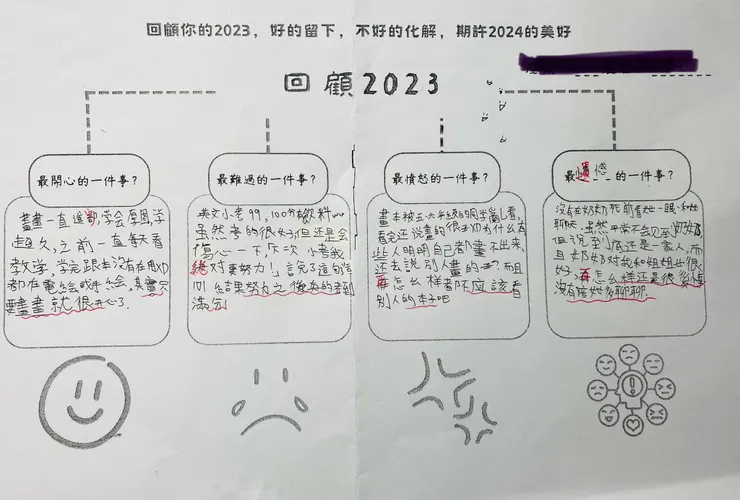 回顧你的2023，好的留下，不好的化解，期許2024的美好
回顧2023
最開心的一件事？
畫畫一直進步,学会厚風,学
超久,之前一直每天看
教学,学完跟本沒在用切
都在電繪或手绘,其實只
要畫畫就很開心了.
最難過的一件事？
英文小老99,100分有飲料
雖然考的很好了但还是会
傷心一下,下次小考我
絕对更努力！說了這句洛
结果努力之後真的拿到
滿分!
最憤怒的一件事？
畫本被五六年級的同学亂看,
看完还說畫的很
些人明明自己都畫不出来,
还去說别人畫的 而且
再怎么样都不應該看
别人的本子吧
最遺憾的一件事？
沒有在奶奶死前看她一眼,和她
聊天.雖然平常不会見
但說到底还是一家人,而
且奶奶对我和姐姐也很
好,再怎么样还是很後悔
沒有陪她多聊聊.